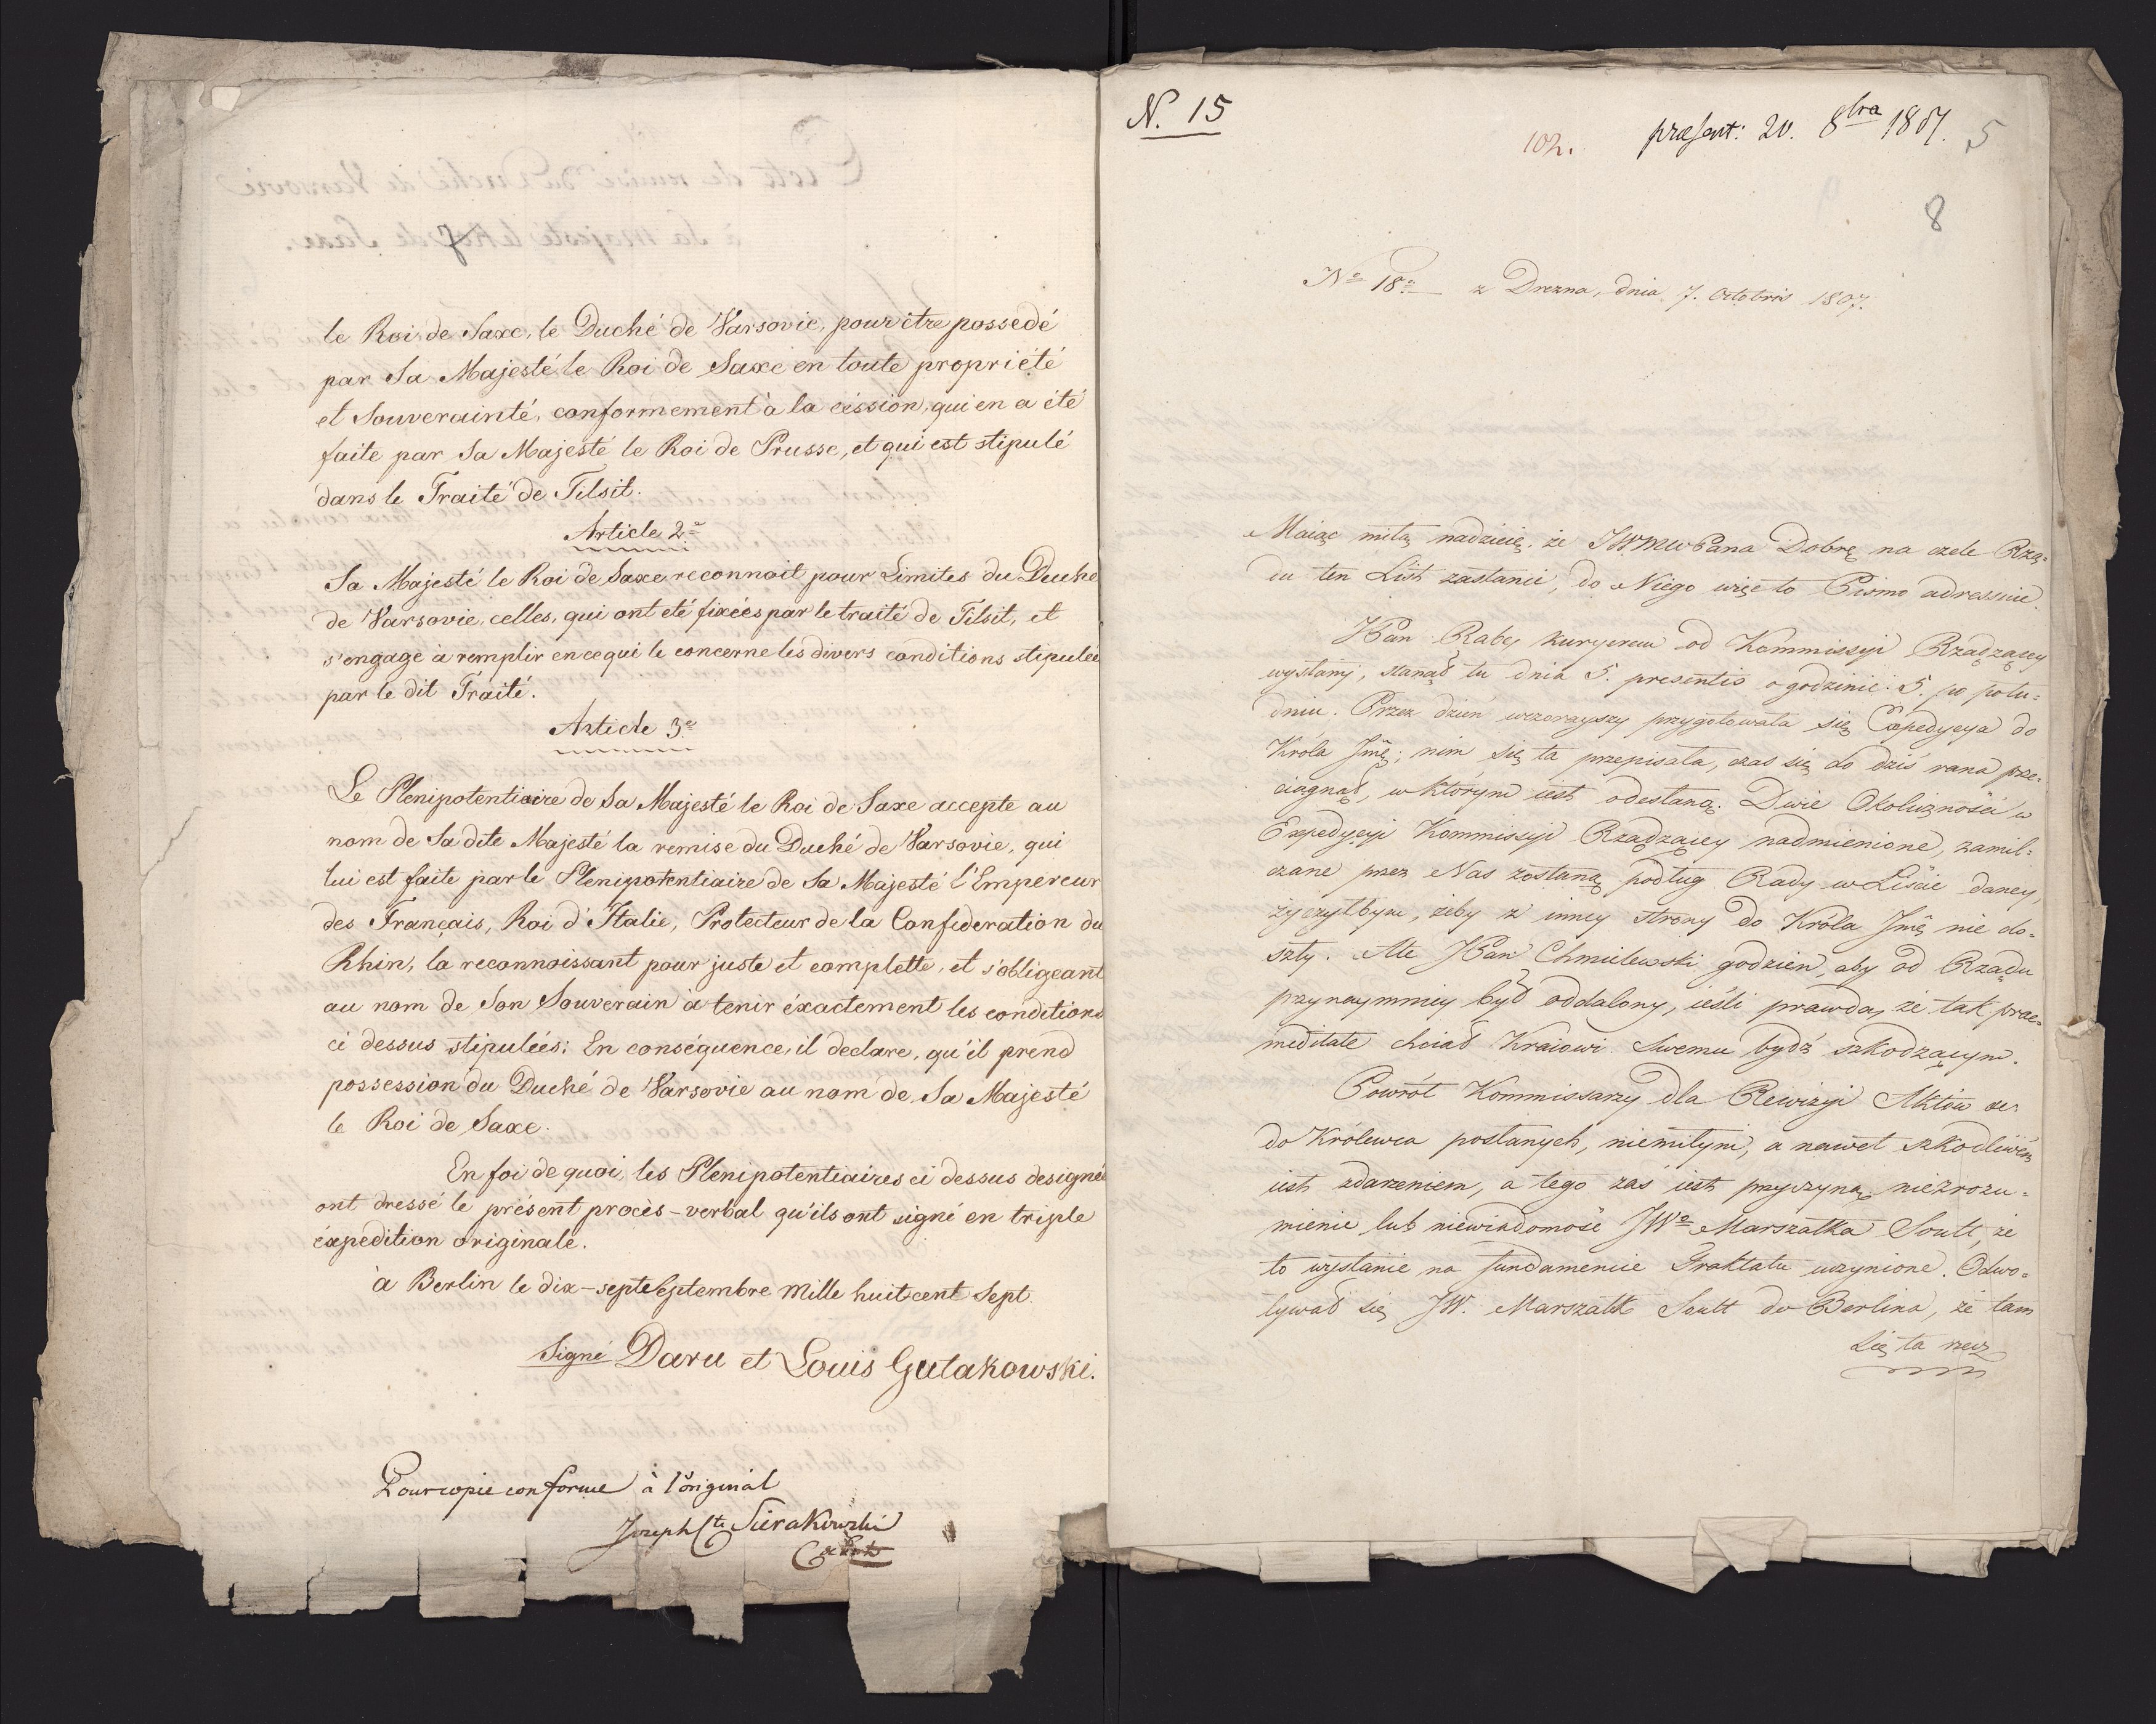 le Roi de Saxe, le Duché de Varsovie, pour être possedé
par Sa Majesté le Roi de Saxe en toute propriété
et Souverainté, conformement à la céssion, qui en a été
faite par Sa Majesté le Roi de Prusse, et qui est stipulé
dans le Traité de Tilsit.
Article 2e
Sa Majesté le Roi de Saxe reconnoit pour Limites du Duché
de Varsovie, celles, qui ont eté fixées par le traité de Tilsit, et
s'engage à remplir en ce qui le concerne les divers conditions stipulées
par le dit Traité.
Article 3e
Le Plenipotentiaire de Sa Majesté le Roi de Saxe accepte au
nom de Sa dite Majesté la remise du Duché de Varsovie, qui
lui est faite par le Plenipotentiaire de Sa Majesté l'Empereur
des Français, Roi d'Italie, Protecteur de la Confederation du
Rhin, la reconnoissant pour juste et complette, et s'obligeant
au nom de Son Souverain à tenir éxactement les conditions
ci dessus stipulées; En conséquence, il declare, qu'il prend
possession du Duché de Varsovie au nom de Sa Majesté
le Roi de Saxe.
En foi de quoi, les Plenipotentiaires ci dessus designés
ont dressé le présent procès-verbal qu'ils ont signé en triple
éxpedition originale.
à Berlin le dix-sept Septembre Mille huit cent Sept.
Signé Daru et Louis Gutakowski.
Pour copie conforme à l'original
Joseph Cte Sierakowski
N. 15
102.
præsent: 20. 8bra 1807.
5
8
No 18o z Drezna, dnia 7. Octobris 1807.
Maiąc miłą nadzieię, że JWMWPana Dobrę na czele Rzą=
du ten List zastanie, do Niego więc to Pismo adressuię.
JPan Rabę kuryerem od Kommissyi Rządzącey
wysłany, stanął tu dnia 5. presentis o godzinie 5. po połu=
dniu. Przez dzień wczorayszy przygotowała się Expedycya do
Króla Jmć; nim się ta przepisała, czas się do dziś rana prze=
ciągnął, w którym iest odesłaną. Dwie Okoliczności w
Expedycyi Kommissyi Rządzącey nadmienione, zamil=
czane przez Nas zostaną podług Rady w Liście daney,
życzyłbym, żeby z inney strony do Króla Jmć nie do=
szły. Ale JPan Chmielewski godzien, aby od Rządu
przynaymniey był oddalony, ieśli prawda, że tak præ=
meditate chciał Kraiowi Swemu bydź szkodzącym.
Powrót Kommissarzy dla Rewizyi Aktów
do Królewca posłanych, niemiłym, a nawet szkodliwem
iest zdarzeniem, a tego zaś iest przyczyną niezrozu=
mienie lub niewiadomość JWo Marszałka Soult, że
to wysłanie na fundamencie Traktatu uczynione. Odwo=
ływał się JW. Marszałk Soult do Berlina, że tam
Się ta rzecz